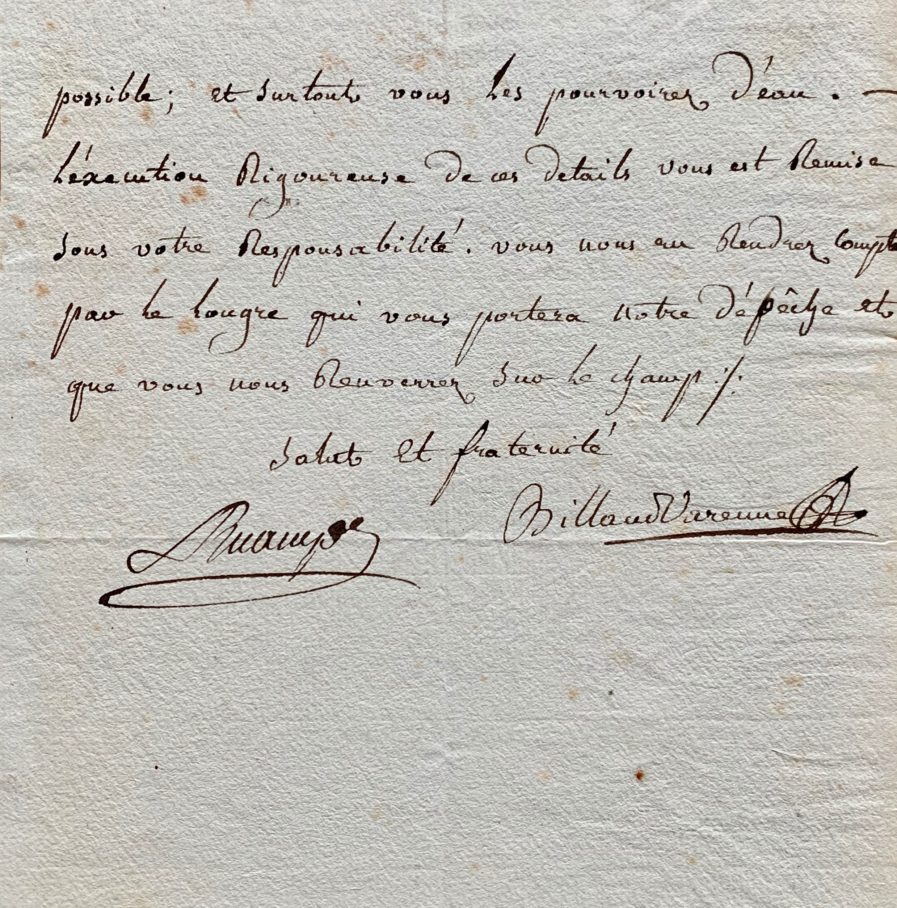 possible; et surtout vous les pourvoirez d'éau. —
L'éxecution Rigoureuse de ces details vous est Remise
sous votre Responsabilité. vous nous en Rendrez compte
par le lougre qui vous portera notre dépêche et
que vous nous Renverrez sur le champ ./.
Salut et fraternité
BillaudVarenne